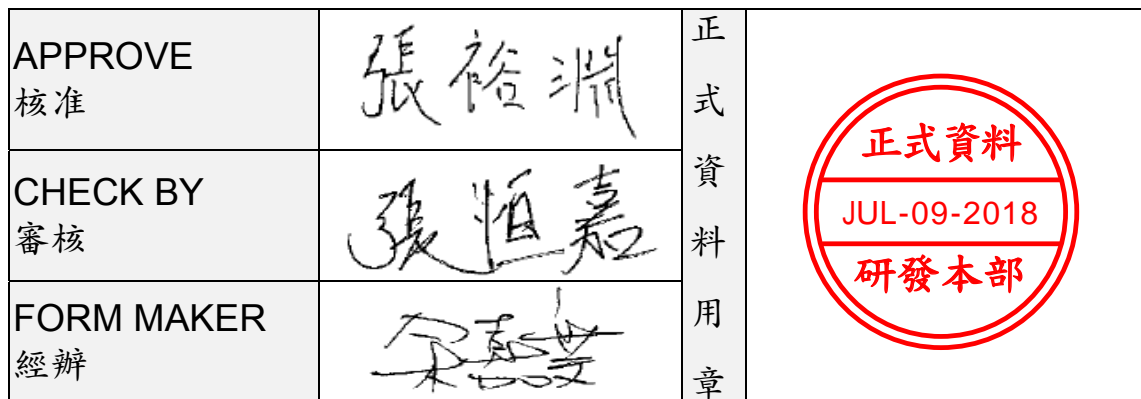 APPROVE
核准
張裕淵
CHECK BY
審核
張恒嘉
FORM MAKER
經辦
正式資料用章
正式資料
JUL-09-2018
研發本部